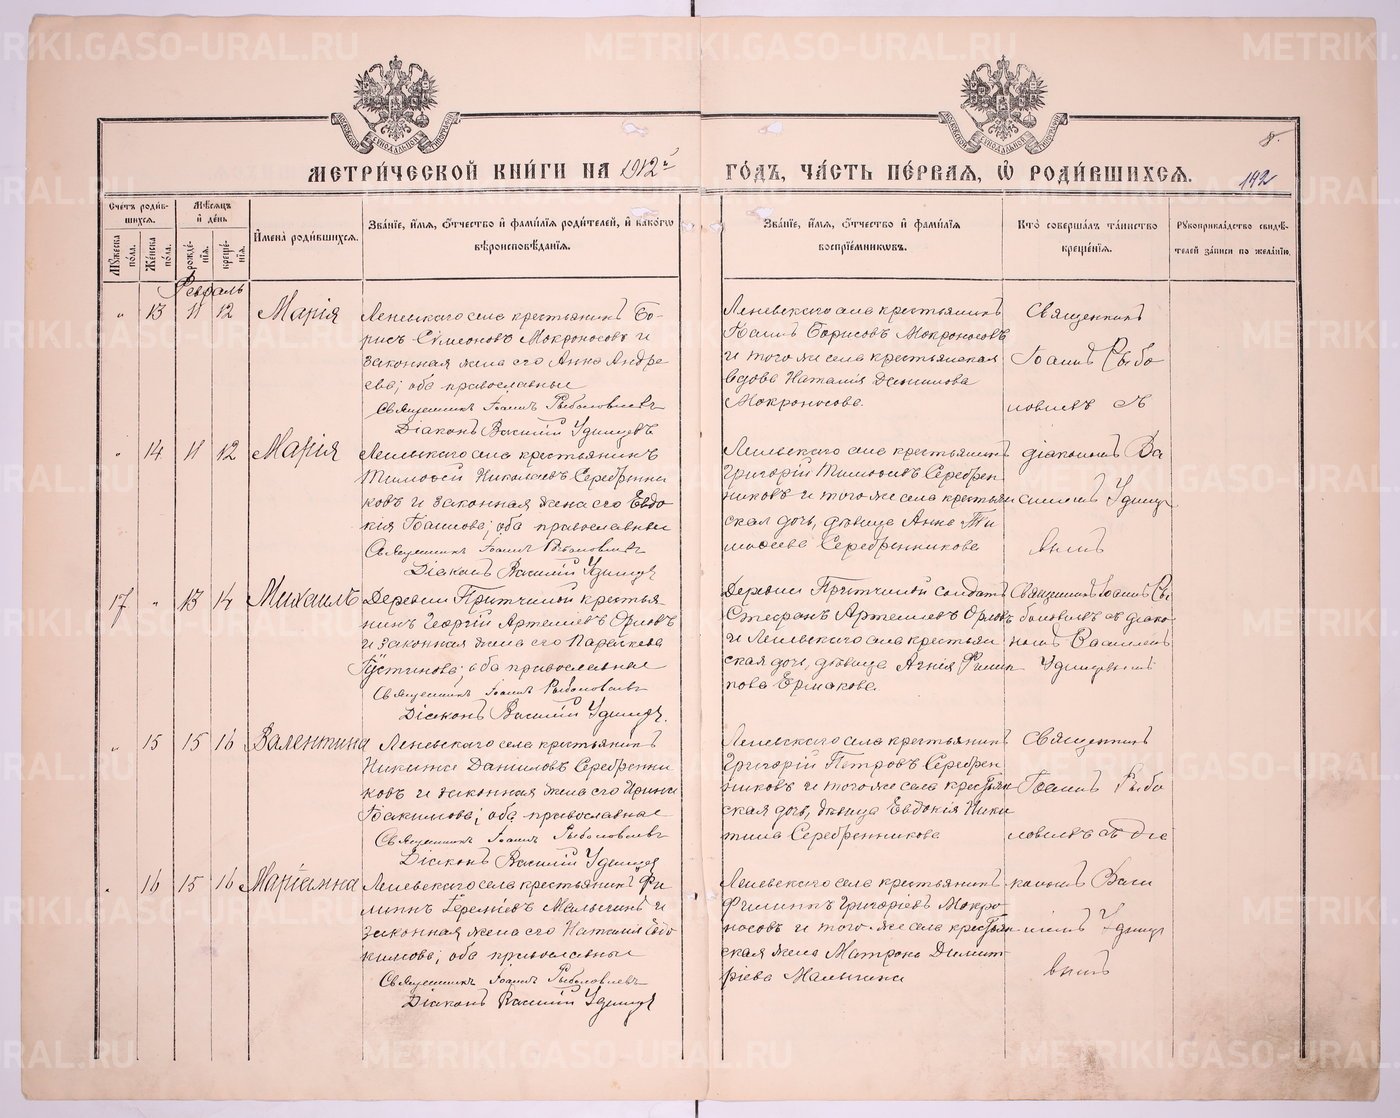 МЕТРИ́ЧЕСКОЙ КНИ́ГИ НА 1912й ГО́ДЪ, ЧА́СТЬ ПЕ́РВАЯ, Ѿ РОДИ́ВШИХСЯ.
8.
192
Сче́тъ роди́в-
шихся.
Му́жеска по́ла.
Же́нска по́ла.
Мѣ́сяцъ
и҆ де́нь
рожде́-
нїя.
креще́-
нїя.
И҆мена̀ роди́вшихся.
Зва́нїе, и҆́мя, ѻ҆́тчество и҆ фамѝлїя роди́телей, и҆ како́гѡ
вѣроисповѣ́данїя.
Зва́нїе, и҆́мя, ѻ҆́тчество и҆ фамѝлїя
воспрїе́мниковъ.
Кто̀ соверша́лъ та́инство
креще́нїя.
Рукоприкла́дство свидѣ́-
телей за́писи по жела́нїю.
Февраль
" 13 11 12 Марія
Леневскаго села крестьянинъ Бо-
рисъ Сѵмеоновъ Мокроносовъ и
законная жена его Анна Андре
ева; оба православные
Священникъ Іоаннъ Рыболовлевъ
Діаконъ Василій Удинцевъ
Леневскаго села крестьянинъ
Іоаннъ Борисовъ Мокроносовъ
и того же села крестьянская
вдова Наталія Данилова
Мокроносова.
Священникъ
Іоаннъ Рыбо
ловлевъ съ
" 14 11 12 Марія
Леневскаго села крестьянинъ
Тимоѳей Николаевъ Серебренни
ковъ и законная жена его Евдо
кія Іоаннова; оба православные
Священникъ Іоаннъ Рыболовлевъ
Діаконъ Василій Удинцевъ
Леневскаго села крестьянинъ
Григорій Тимоѳеевъ Серебрен
никовъ и того же села крестьян
ская дочь, дѣвица Анна Ти
моѳеева Серебренникова
діакономъ Ва
силіемъ Удинце
вымъ
17 " 13 14 Михаилъ
Деревни Притчиной крестья
нинъ Георгій Артемьевъ Орловъ
и законная жена его Параскева
Іустинова; оба православные
Священникъ Іоаннъ Рыболовлевъ
Діаконъ Василій Удинцевъ.
Деревни Притчиной солдатъ
Стефанъ Артемьевъ Орловъ
и Леневскаго села крестьян
ская дочь, дѣвица Агнія Филип
пова Ермакова.
Священникъ Іоаннъ Ры
боловлевъ съ діако
номъ Василіемъ
Удинцевымъ
" 15 15 16 Валентина
Леневскаго села крестьянинъ
Никита Даниловъ Серебренни
ковъ и законная жена его Ирина
Іоакимова; оба православные
Священникъ Іоаннъ Рыболовлевъ
Діаконъ Василій Удинцевъ
Леневскаго села крестьянинъ
Григорій Петровъ Серебрен
никовъ и того же села крестьян
ская дочь, дѣвица Евдокія Ники
тина Серебренникова
Священникъ
Іоаннъ Рыбо
ловлевъ съ діа
" 16 15 16 Маріамна
Леневскаго села крестьянинъ Фи
липпъ Іереміевъ Малыгинъ и
законная жена его Наталія Евдо
кимова; оба православные
Священникъ Іоаннъ Рыболовлевъ
Діаконъ Василій Удинцевъ
Леневскаго села крестьянинъ
Филиппъ Григорьевъ Мокро-
носовъ и того же села крестьян
ская жена Матрона Димит
ріева Малыгина
кономъ Васи
ліемъ Удинце
вымъ